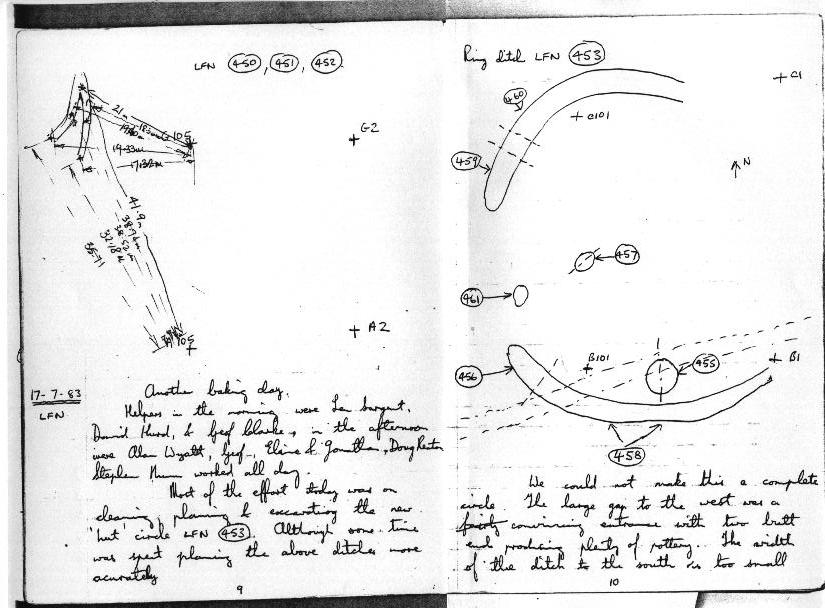 LFN 450, 451, 452
21m
18.3m
G105
19.33m
17.32m
G2
41.9m
38.76m
38.52m
32.18m
35.71
A2
17-7-83
LFN
Another baking day.
Helpers in the morning were Len Sargent,
David Hurd, & Geof Clarke, in the afternoon
were Alan Wyatt, Geof, Elaine & Jonathan, Doug
Stephen worked all day.
Most of the effort today was on
cleaning, planning & excavating the new
'hut circle LFN 453. Although some time
was spent planning the above ditches more
acurately
9
Ring ditch LFN 453
C1
460
C101
459
N
457
461
B101
B1
456
455
458
We could not make this a complete
circle. The large gap to the west was a
convincing entrance with two butt
end producing plenty of pottery. The width
of the ditch to the south is too small
10